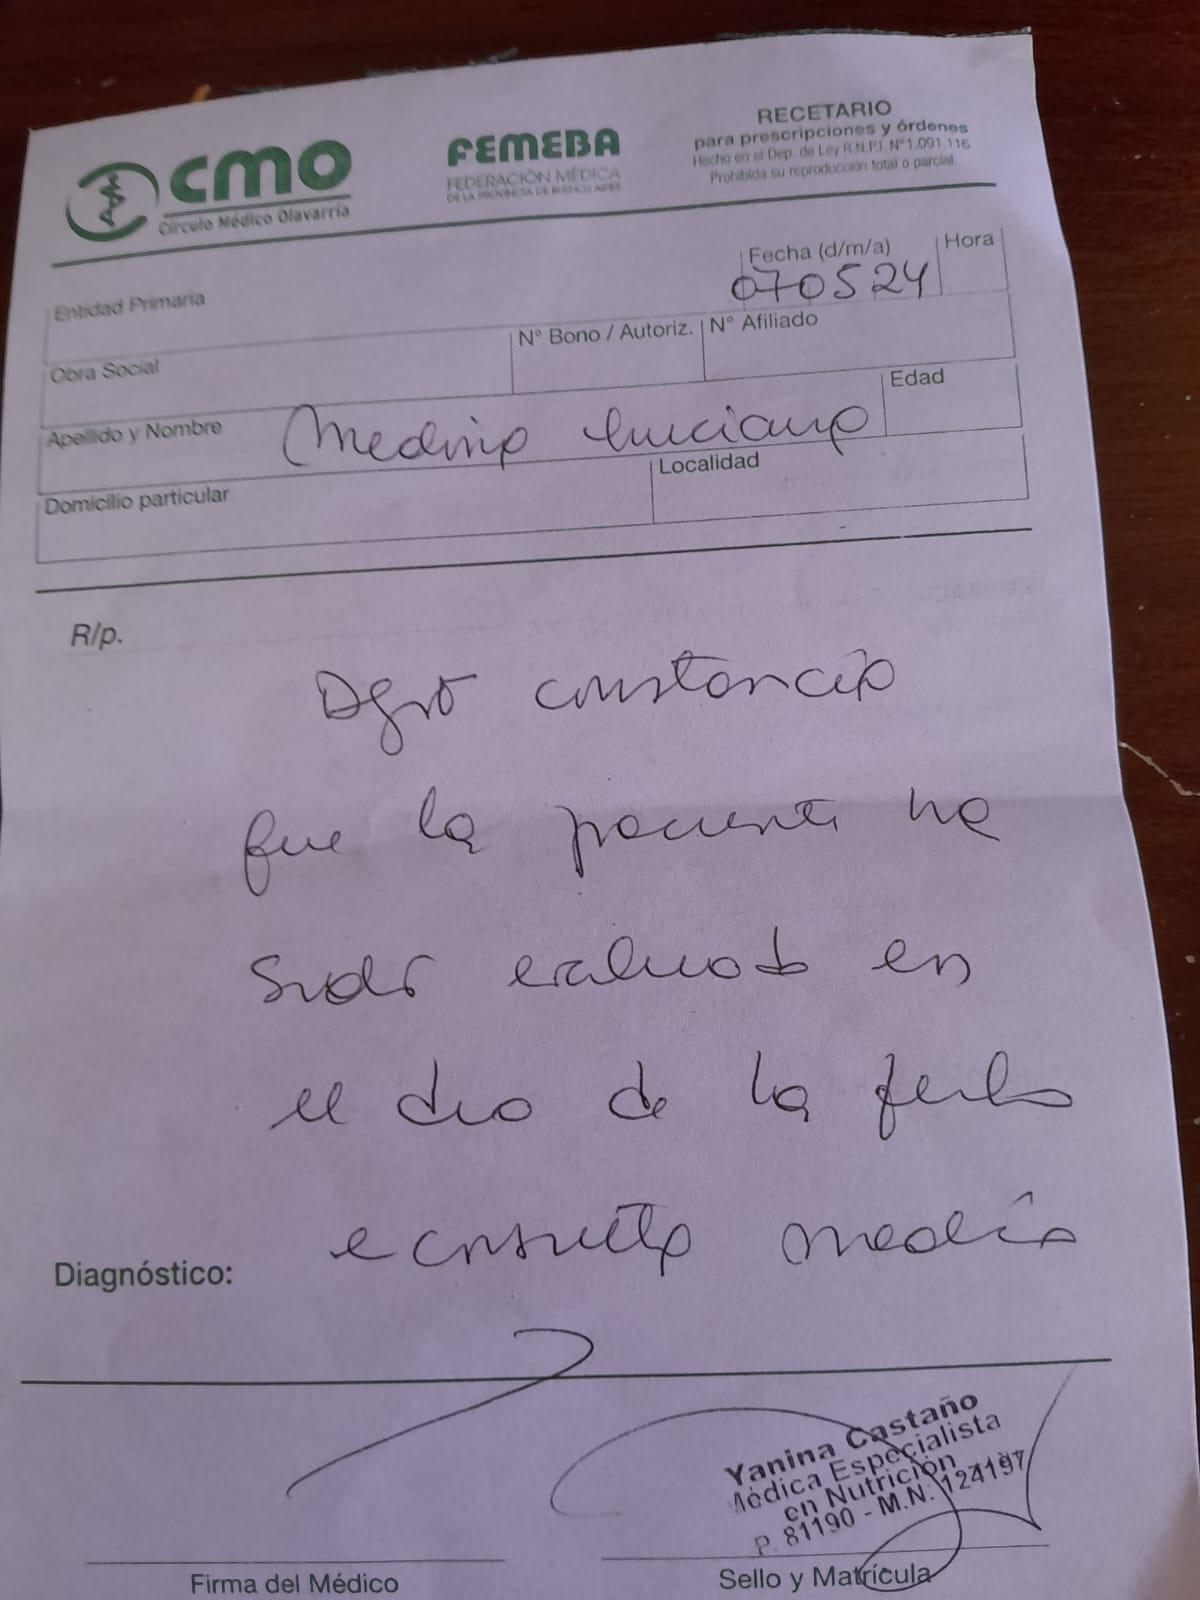 CMO
Círculo Médico Olavarría
FEMEBA
FEDERACIÓN MÉDICA
DE LA PROVINCIA DE BUENOS AIRES
RECETARIO
para prescripciones y órdenes
Hecho en el Dep. de Ley R.N.P.I. N°1.091.116
Prohibida su reproducción total o parcial.
Fecha (d/m/a) Hora
070524
Entidad Primaria
Obra Social N° Bono / Autoriz. N° Afiliado
Apellido y Nombre Medina Luciana Edad
Domicilio particular Localidad
R/p.
Dejo constancia
que la paciente ha
sido evaluada en
el dia de la fecha
e consulta medica
Diagnóstico:
Yanina Castaño
Médica Especialista
en Nutrición
P. 81190 - M.N. 124197
Firma del Médico Sello y Matrícula